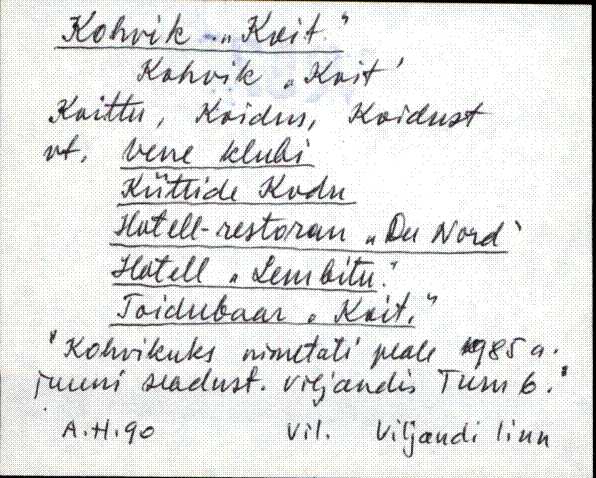 Kohvik „Koit"
Kohvik „Koit'
Koittu, Koidus, Koidust
vt. vene klubi
Küttide Kodu
Hotell-restoran „Du Nord"
Hotell „Lembitu."
Toidubaar „Koit."
"Kohvikuks nimetati peale 1985 a.
juuni seadust. Viljandis Turu 6."
A.H.90 Vil. Viljandi linn